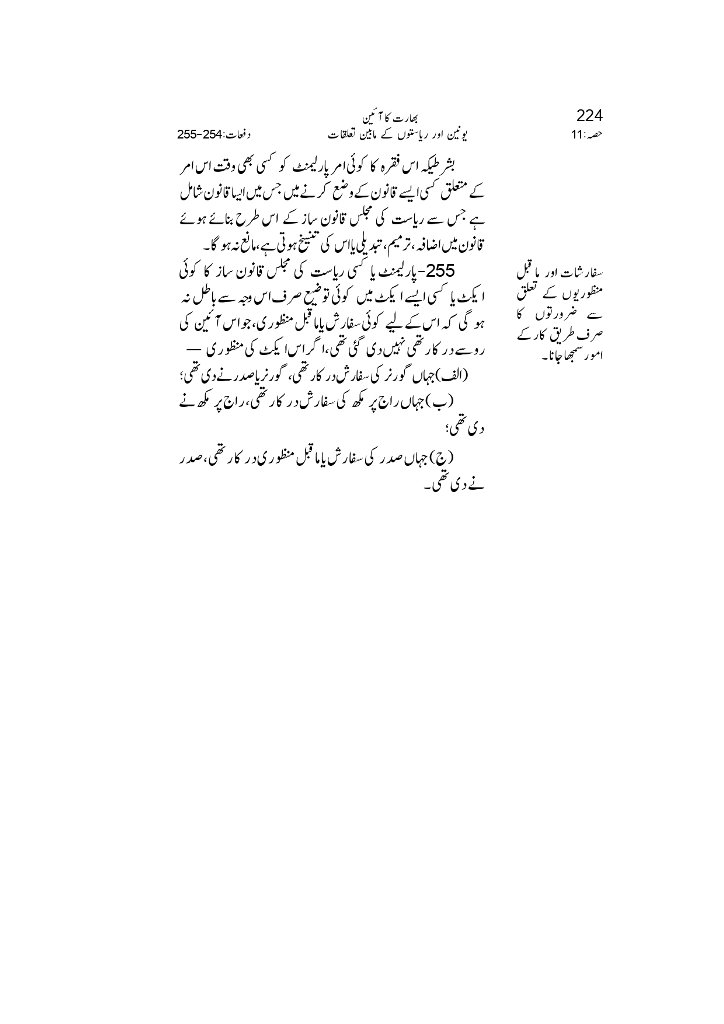 224
بھارت کا آئین
حصہ:11
یونین اور ریاستوں کے مابین تعلقات
دفعات:254–255
بشرطیکہ اس فقرہ کا کوئی امر پارلیمنٹ کو کسی بھی وقت اس امر
کے متعلق کسی ایسے قانون کے وضع کرنے میں جس میں ایسا قانون شامل
ہے جس سے ریاست کی مجلس قانون ساز کے اس طرح بنائے ہوئے
قانون میں اضافہ، ترمیم، تبدیلی یا اس کی تنسیخ ہوتی ہے، مانع نہ ہو گا۔
سفارشات اور ماقبل
منظوریوں کے تعلق
سے ضرورتوں کا
صرف طریق کار کے
امور سمجھا جانا۔
255–پارلیمنٹ یا کسی ریاست کی مجلس قانون ساز کا کوئی
ایکٹ یا کسی ایسے ایکٹ میں کوئی توضیع صرف اس وجہ سے باطل نہ
ہو گی کہ اس کے لیے کوئی سفارش یا ماقبل منظوری، جو اس آئین کی
رو سے درکار تھی نہیں دی گئی تھی، اگر اس ایکٹ کی منظوری —
(الف) جہاں گورنر کی سفارش درکار تھی، گورنر یا صدر نے دی تھی؛
(ب) جہاں راج پرمکھ کی سفارش درکار تھی، راج پرمکھ نے
دی تھی؛
(ج) جہاں صدر کی سفارش یا ماقبل منظوری درکار تھی، صدر
نے دی تھی۔